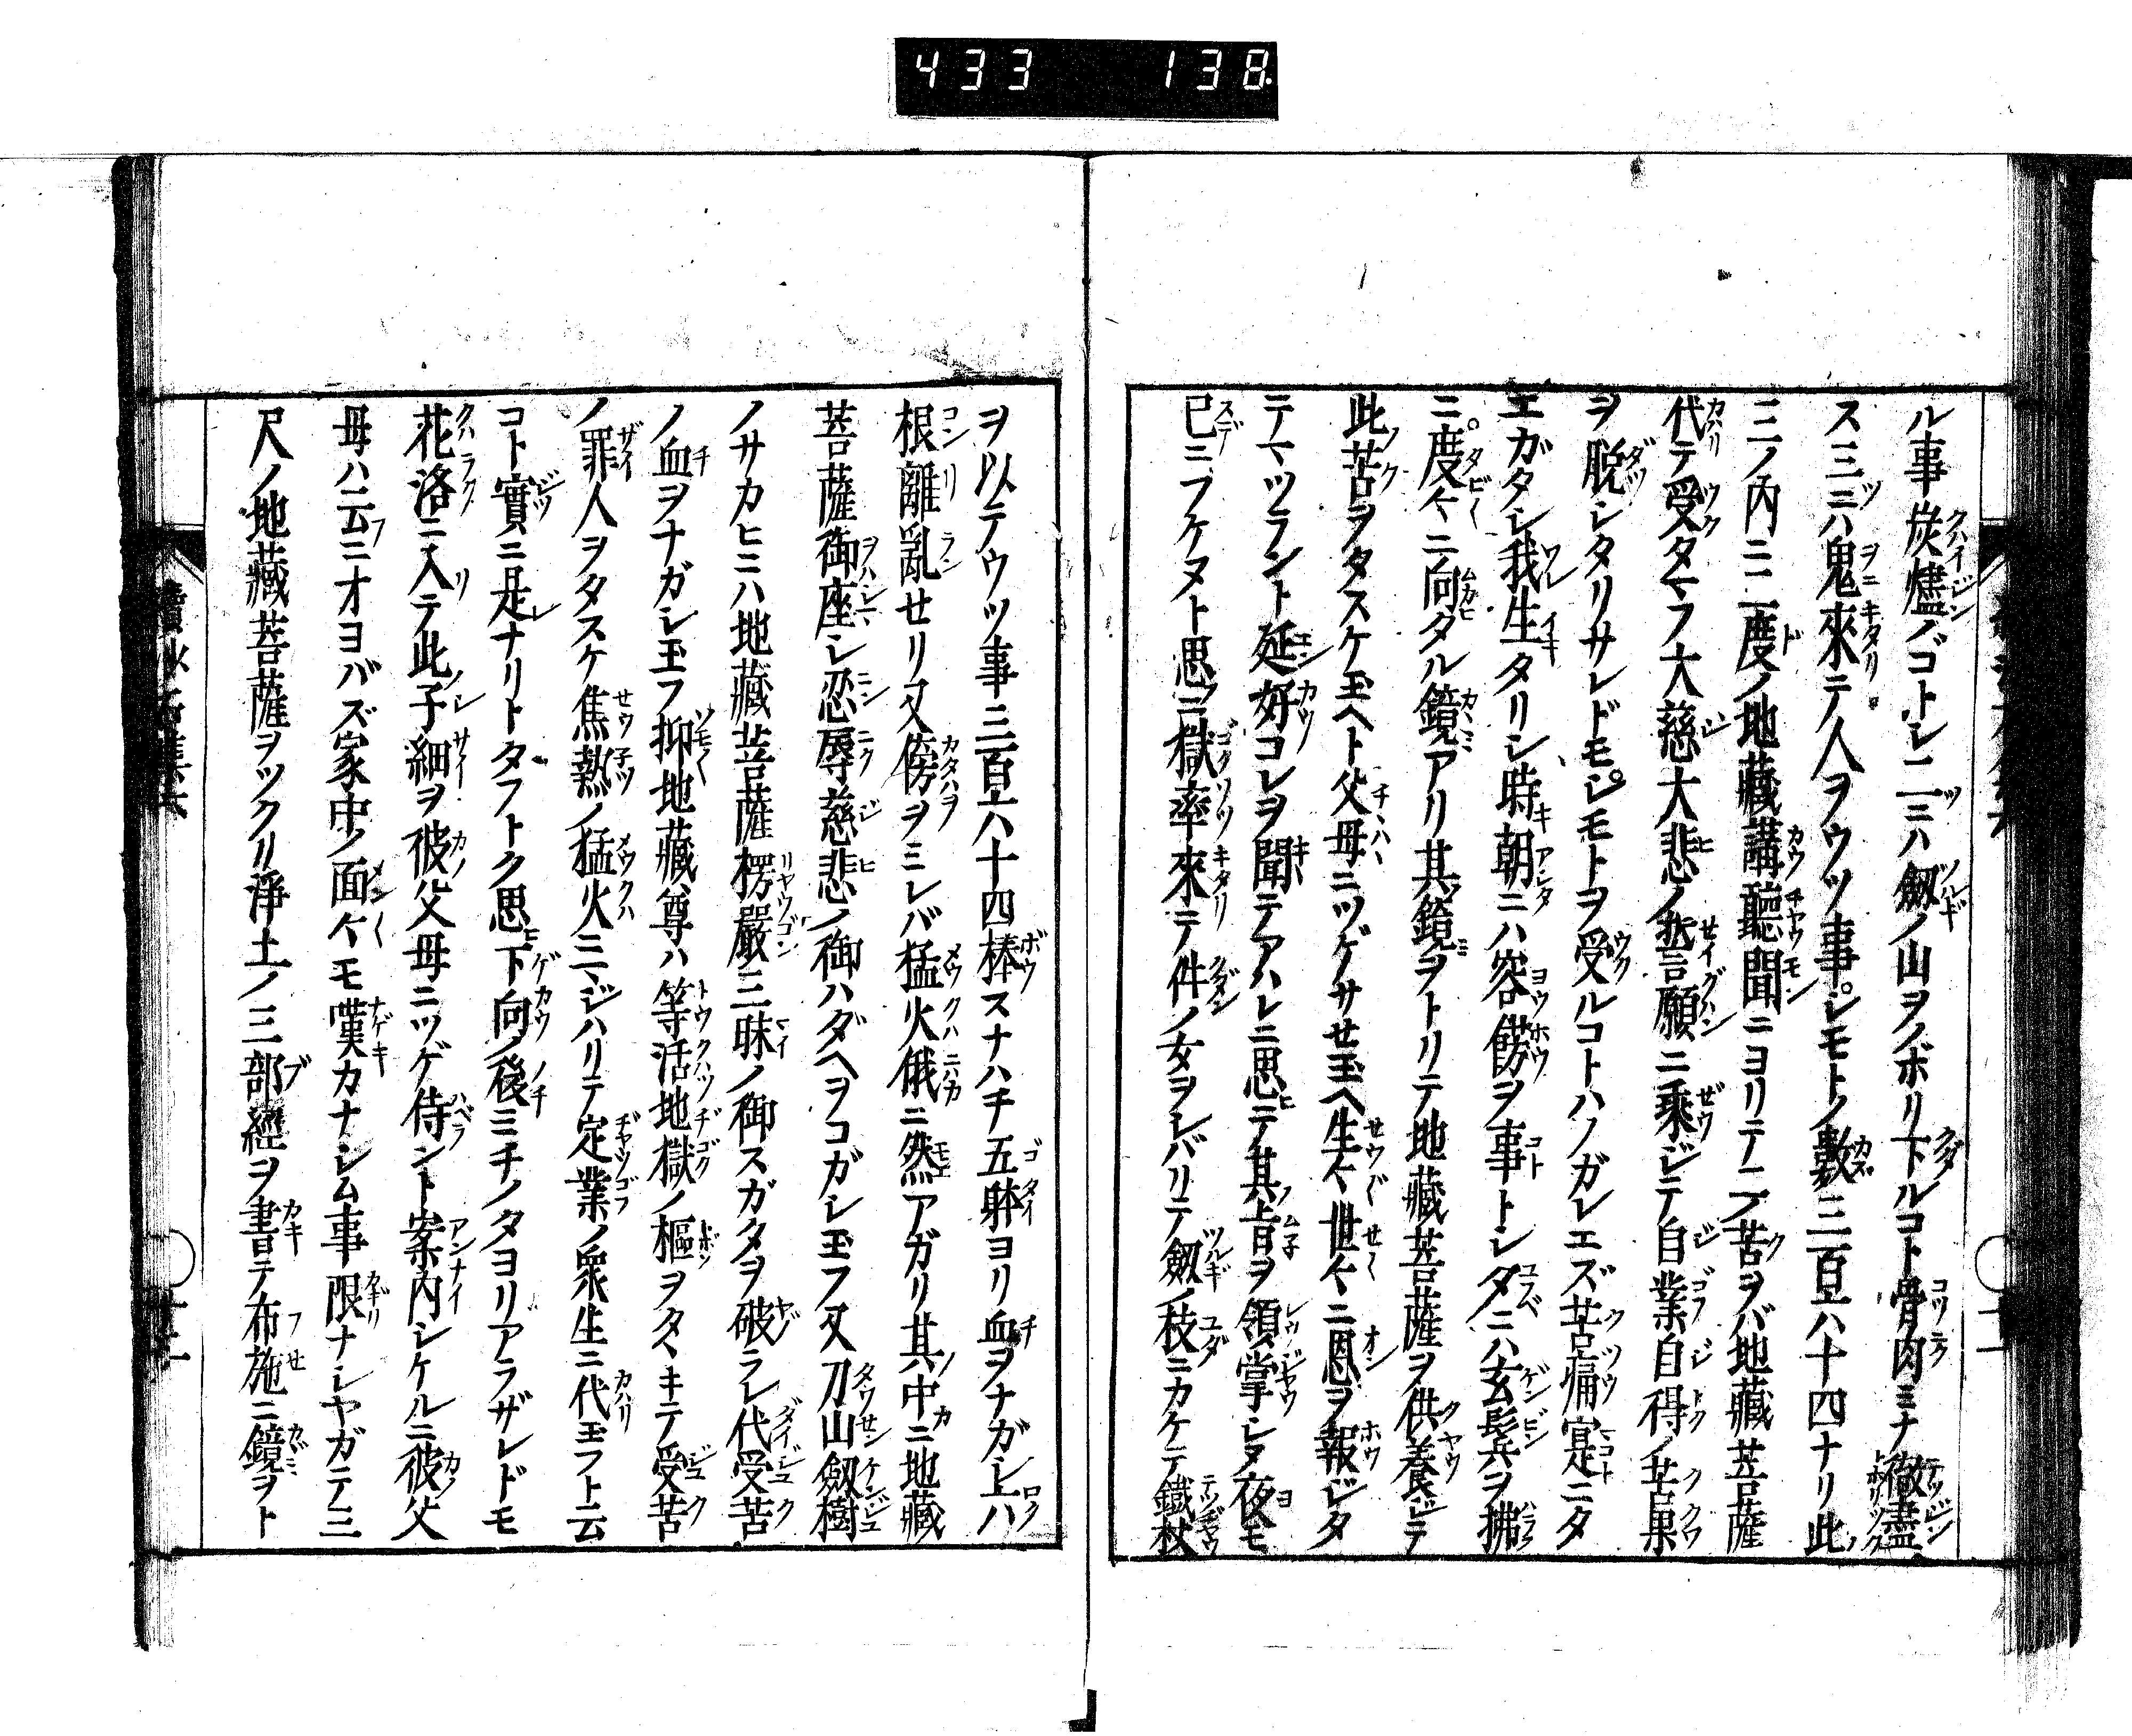 433 138
ル事炭燼ノゴトシ二ツニハ劔ノ山ヲノボリ下ルコト骨肉ミナ徹盡
ス三ツニハ鬼來テ人ヲウツ事シモトノ數三百六十四ナリ此
三ノ內ニ二度ノ地藏講聽聞ニヨリテ一ノ苦ヲバ地藏菩薩
代テ受タマフ大慈大悲ノ誓願ニ乘ジテ自業自得ノ苦菓
ヲ脫シタリサレドモシモトヲ受ルコトハノガレエズ苦痛寔ニタ
エガタシ我生タリシ時朝ニハ容餝ヲ事トシ夕ニハ玄鬂ヲ拂
ニ度〻ニ向タル鏡アリ其鏡ヲトリテ地藏菩薩ヲ供養ジテ
此苦ヲタスケ玉ヘト父母ニツゲサせ玉ヘ生〻世〻ニ恩ヲ報ジタ
テマツラント延好コレヲ聞テアハレニ思ヒテ其旨ヲ領掌シタ夜モ
已ニフケヌト思フニ獄率來テ件ノ女ヲシバリテ劔ノ枝ニカケテ鐵杖
ヲ以テウツ事三百六十四棒スナハチ五躰ヨリ血ヲナガシ六
根離亂せリ又傍ヲミレバ猛火俄ニ然アガリ其中ニ地藏
菩薩御座シ忍辱慈悲ノ御ハダヘヲコガシ玉フ又刀山劔樹
ノサカヒニハ地藏菩薩楞嚴三昧ノ御スガタヲ破ラレ代受苦
ノ血ヲナガシ玉フ抑地藏尊ハ等活地獄ノ樞ヲタヽキテ受苦
ノ罪人ヲタスケ焦熱ノ猛火ニマジハリテ定業ノ衆生ニ代玉フト云
コト實ニ是ナリトタフトク思ヒ下向ノ後ミチノタヨリアラザレドモ
花洛ニ入テ此子細ヲ彼父母ニツゲ侍ント案內シケルニ彼父
母ハ云ニオヨバズ家中ノ面〻モ嘆カナシム事限ナシヤガテ三
尺ノ地藏菩薩ヲツクリ淨土ノ三部經ヲ書テ布施ニ鏡ヲト